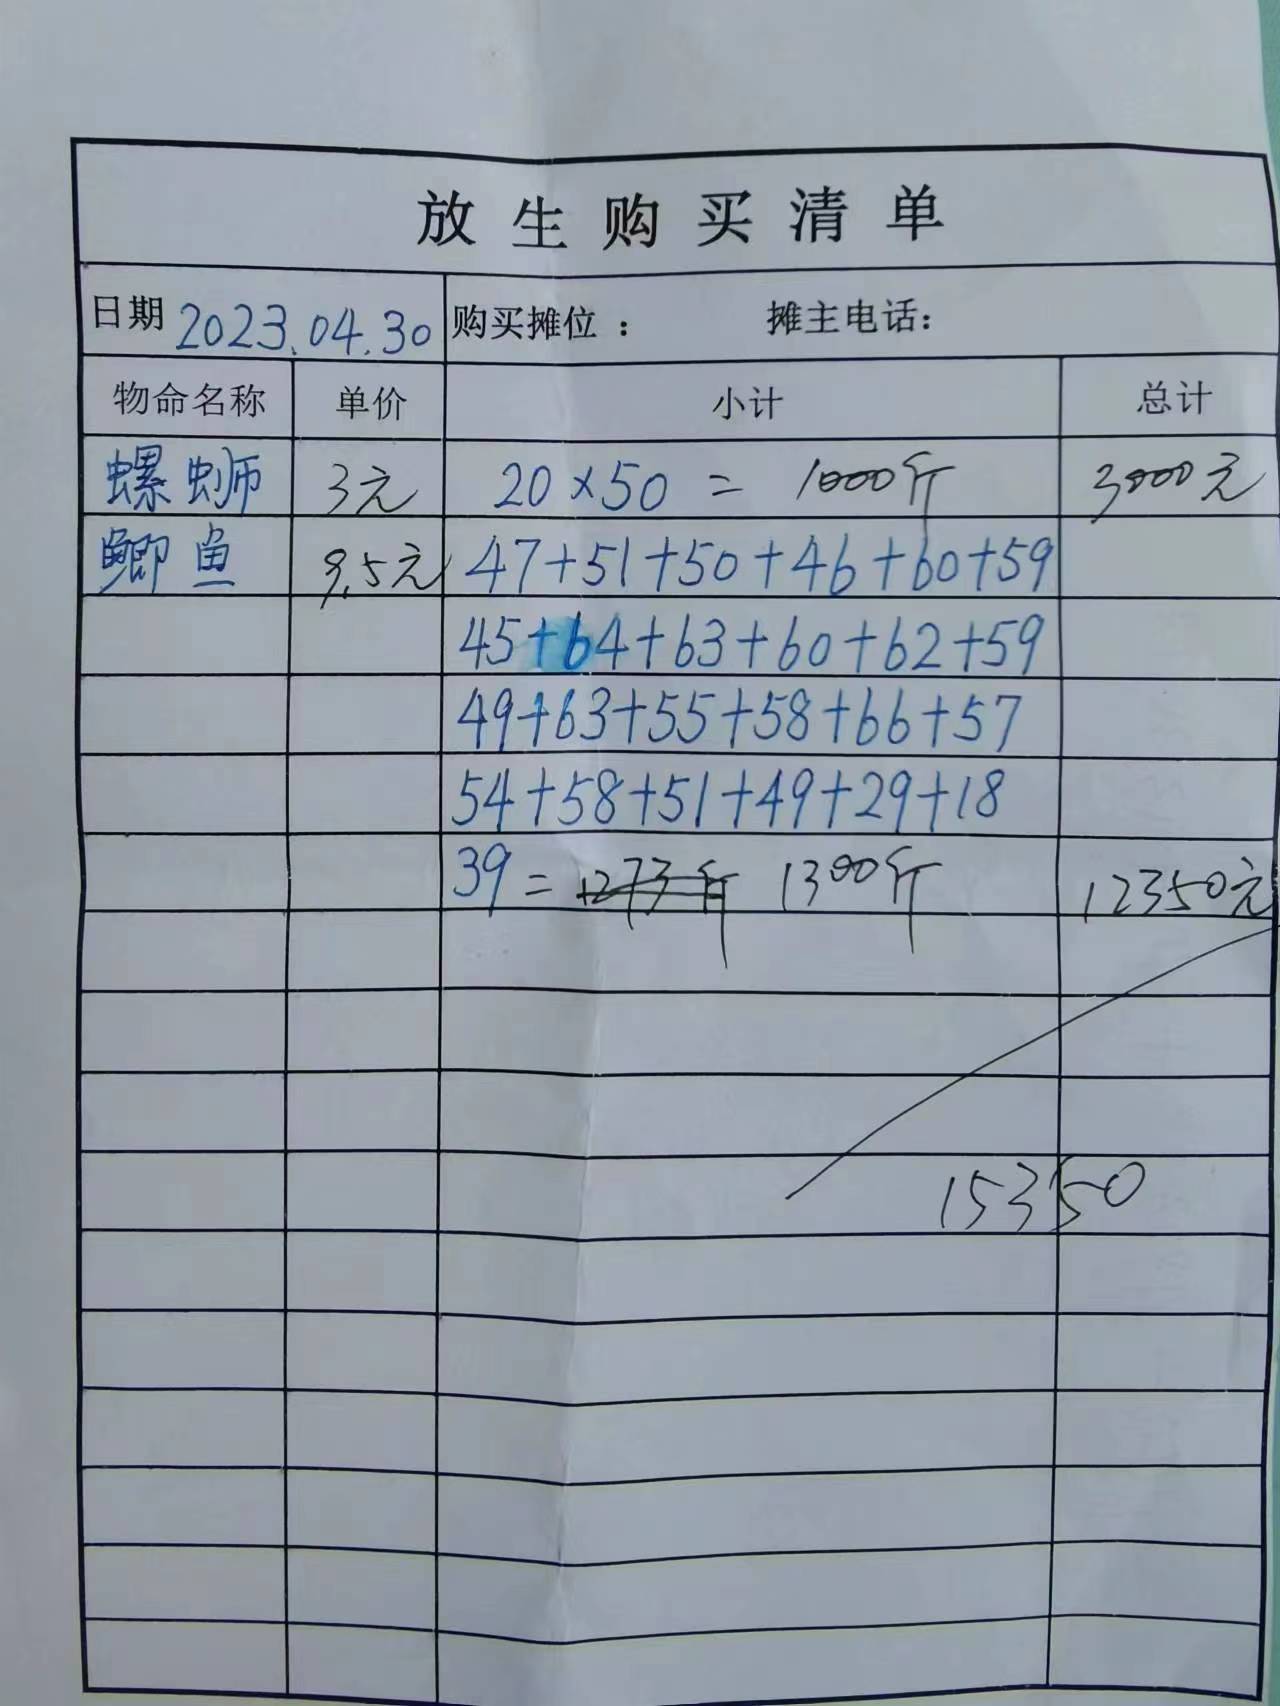 放生购买清单
日期 2023.04.30 购买摊位： 摊主电话：
物命名称 单价 小计 总计
螺蛳 3元 20×50 = 1000斤 3000元
鲫鱼 9.5元 47+51+50+46+60+59
45+64+63+60+62+59
49+63+55+58+66+57
54+58+51+49+29+18
39 = 1273斤 1300斤 12350元
15350